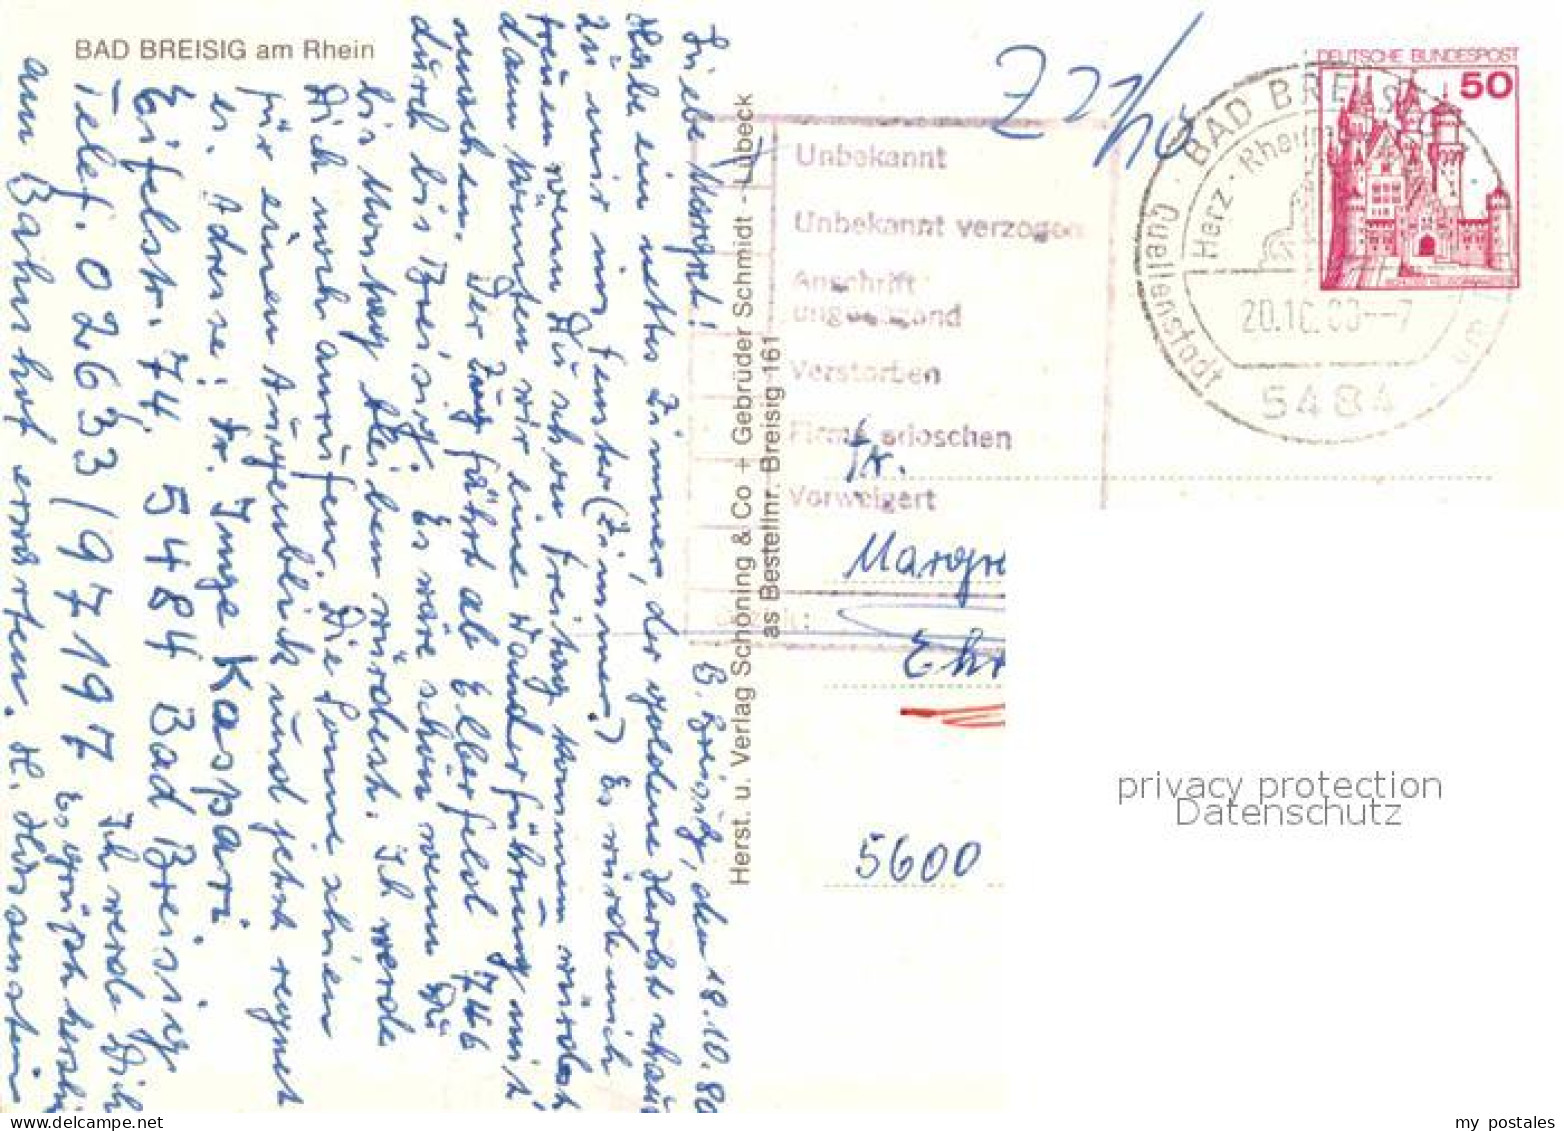 BAD BREISIG am Rhein
B. Breisig, den 18.10.80
Liebe Margret!
Habe ein nettes Zimmer, der goldene Herbst schaut
zu mir ins Fenster (Zimmer.) Es würde mich
freuen wenn Du schon Freitag kommen würdest
dann könnten wir eine Wanderführung mit
machen. Der Zug fährt ab Elberfeld 7 46
durch bis Breisig. Es wäre schön wenn Du
bis Montag bleiben würdest. Ich werde
Dich noch anrufen. Die Sonne schien
für einen Augenblick und jetzt regnet
es. Adresse: Fr. Inge Kaspari
Eifelstr. 74. 5484 Bad Breisig
Telef. 02633/97197 Ich werde Dich
am Bahnhof erwarten. Es grüßt herzli
Herst. u. Verlag Schöning & Co + Gebrüder Schmidt - Lübeck
as Bestellnr. Breisig 161
Z 22/10
Unbekannt
Unbekannt verzogen
Anschrift
ungenügend
Verstorben
Firma erloschen
Verweigert
Fr.
Margre
Ehr
5600
DEUTSCHE BUNDESPOST
50
BAD BREISIG
Quellenstadt
Herz · Rhein
20.10.80--7
5484
privacy protection
Datenschutz
my postales